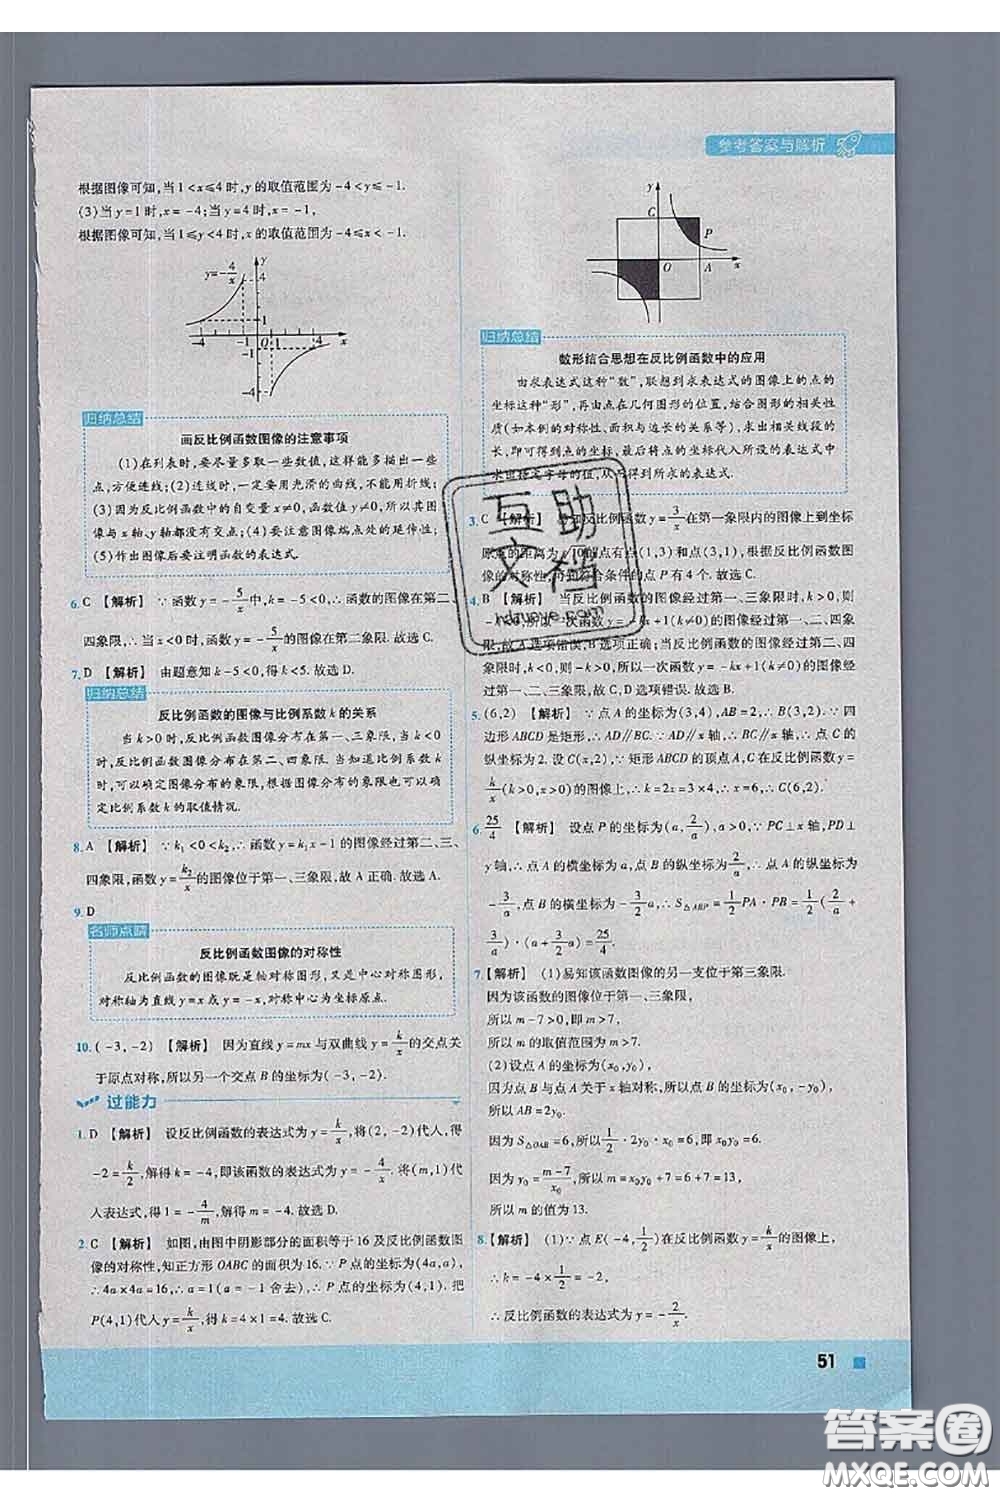 参考答案与解析
根据图像可知,当1<x≤4时,y的取值范围为-4<y≤-1.
(3)当y=1时,x=-4;当y=4时,x=-1,
根据图像可知,当1≤y<4时,x的取值范围为-4≤x<-1.
y=-4/x
y
4
1
-4 -1 O 1 4 x
-1
-4
归纳总结
画反比例函数图像的注意事项
(1)在列表时,要尽量多取一些数值,这样能多描出一些
点,方便连线;(2)连线时,一定要用光滑的曲线,不能用折线;
(3)因为反比例函数中的自变量x≠0,函数值y≠0,所以其图
像与x轴、y轴都没有交点;(4)要注意图像端点处的延伸性;
(5)作出图像后要注明函数的表达式.
6.C 【解析】 ∵函数y=-5/x中,k=-5<0,∴函数的图像在第二、
四象限,∴当x<0时,函数y=-5/x的图像在第二象限.故选C.
7.D 【解析】 由题意知k-5<0,得k<5.故选D.
归纳总结
反比例函数的图像与比例系数k的关系
当k>0时,反比例函数图像分布在第一、三象限,当k<0
时,反比例函数图像分布在第二、四象限.当知道比例系数k
时,可以确定图像分布的象限,根据图像分布的象限,也可以确
定比例系数k的取值情况.
8.A 【解析】 ∵k₁<0<k₂,∴函数y=k₁x-1的图像经过第二、三、
四象限,函数y=k₂/x的图像位于第一、三象限,故A正确.故选A.
9.D
名师点睛
反比例函数图像的对称性
反比例函数的图像既是轴对称图形,又是中心对称图形,
对称轴为直线y=x或y=-x,对称中心为坐标原点.
10.(-3,-2) 【解析】 因为直线y=mx与双曲线y=k/x的交点关
于原点对称,所以另一个交点B的坐标为(-3,-2).
过能力
1.D 【解析】 设反比例函数的表达式为y=k/x,将(2,-2)代入,得
-2=k/2,解得k=-4,即该函数的表达式为y=-4/x.将(m,1)代
入表达式,得1=-4/m,解得m=-4.故选D.
2.C 【解析】 如图,由图中阴影部分的面积等于16及反比例函数图
像的对称性,知正方形OABC的面积为16.∵P点的坐标为(4a,a),
∴4a×4a=16,∴a=1(a=-1舍去),∴P点的坐标为(4,1).把
P(4,1)代入y=k/x,得k=4×1=4.故选C.
y
C P
O A x
归纳总结
数形结合思想在反比例函数中的应用
由求表达式这种“数”,联想到求表达式的图像上的点的
坐标这种“形”,再由点在几何图形的位置,结合图形的几何性
质(如本例的对称性、面积与边长的关系等),求出相关线段的
长,即得到点的坐标,最后将点的坐标代入所设的表达式中
求出待定字母的值,从而得到所求的表达式.
3.C 【解析】 易知反比例函数y=3/x在第一象限内的图像上到坐标
原点的距离为√10的点有点(1,3)和点(3,1),根据反比例函数图
像的对称性,可知符合条件的点P有4个.故选C.
4.B 【解析】 当反比例函数的图像经过第一、三象限时,k>0,则
-k<0,所以一次函数y=-kx+1(k≠0)的图像经过第一、二、四象
限,故A选项错误,B选项正确;当反比例函数的图像经过第二、四
象限时,k<0,则-k>0,所以一次函数y=-kx+1(k≠0)的图像
经过第一、二、三象限,故C、D选项错误.故选B.
5.(6,2) 【解析】 ∵点A的坐标为(3,4),AB=2,∴B(3,2).∵四
边形ABCD是矩形,∴AD∥BC.∵AD∥x轴,∴BC∥x轴,∴点C的
纵坐标为2.设C(x,2),∵矩形ABCD的顶点A,C在反比例函数y=
k/x(k>0,x>0)的图像上,∴k=2x=3×4,∴x=6,∴C(6,2).
6.25/4 【解析】 设点P的坐标为(a,2/a),a>0,∵PC⊥x轴,PD⊥
y轴,∴点A的横坐标为a,点B的纵坐标为2/a,∴点A的纵坐标为
-3/a,点B的横坐标为-3/2a,∴S△ABP=1/2PA·PB=1/2(2/a+
3/a)·(a+3/2a)=25/4.
7.【解析】 (1)易知该函数图像的另一支位于第三象限.
因为该函数的图像位于第一、三象限,
所以m-7>0,即m>7,
所以m的取值范围为m>7.
(2)设点A的坐标为(x₀,y₀),
因为点B与点A关于x轴对称,所以点B的坐标为(x₀,-y₀),
所以AB=2y₀.
因为S△OAB=6,所以1/2·2y₀·x₀=6,即x₀y₀=6.
因为y₀=(m-7)/x₀,所以m=x₀y₀+7=6+7=13,
所以m的值为13.
8.【解析】 (1)∵点E(-4,1/2)在反比例函数y=k/x的图像上,
∴k=-4×1/2=-2,
∴反比例函数的表达式为y=-2/x.
51
互助
文档
hdzuoye.com
答案圈
MXQE.COM